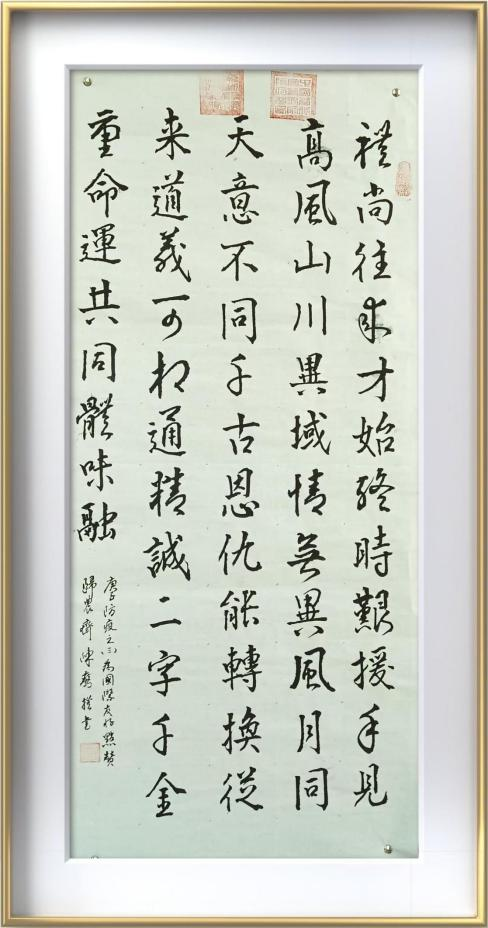 禮尚往來才始終時艱援手見
高風山川異域情無異風月同
天意不同千古恩仇能轉換從
来道義可相通精誠二字千金
重命運共同體味融
庚子防疫之(三)為國際友好點贊
歸農齋陳撰書